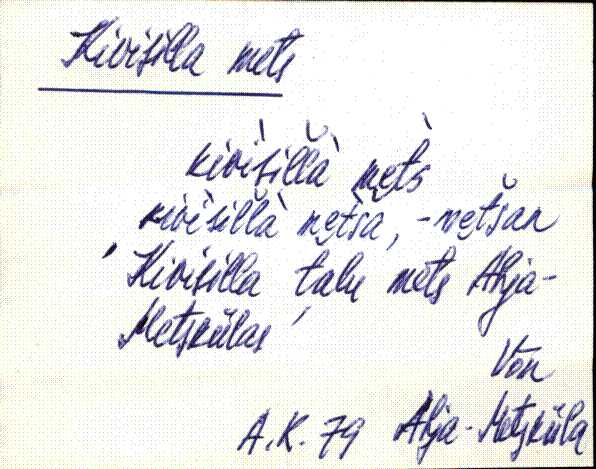 Kivisilla mets
kivìsil̆là mèts
kivìsil̆là metsa, -met̆san
'Kivisilla talu mets Ahja-
Metskülas'
Võn
A.K. 79 Ahja-Metsküla